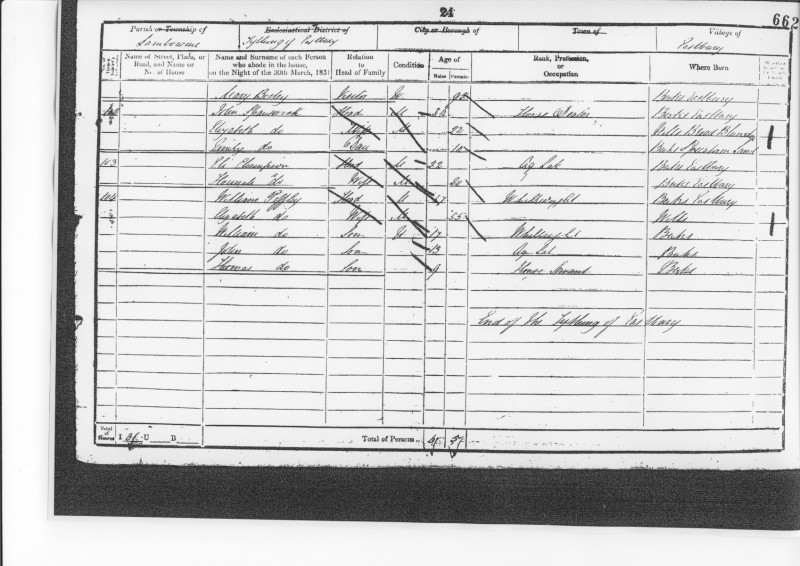 24
662
Parish or Township of Ecclesiastical District of City or Borough of Town of Village of
Lambourne Tything of Eastbury Eastbury
Name of Street, Place, or Road, and Name or No. of House
Name and Surname of each Person who abode in the house, on the Night of the 30th March, 1851
Relation to Head of Family
Condition
Age of
Males Females
Rank, Profession, or Occupation
Where Born
Mary Bosley Visitor Berks Eastbury
John Head M 26 Berks Eastbury
Elizabeth do Wife M 22 Wilts
Emily do Daur
103 Eli Champion Head M 22 Ag Lab Berks Eastbury
Hannah do Wife M 20 Berks Eastbury
104 William Head M Wheelwright Berks Eastbury
Elizabeth do Wife M 55 Wilts
William do Son U 17 Wheelwright Berks
John do Son 13 Ag Lab Berks
Thomas do Son 9 House Servant Berks
End of the Tything of Eastbury
Total of Houses I U B Total of Persons